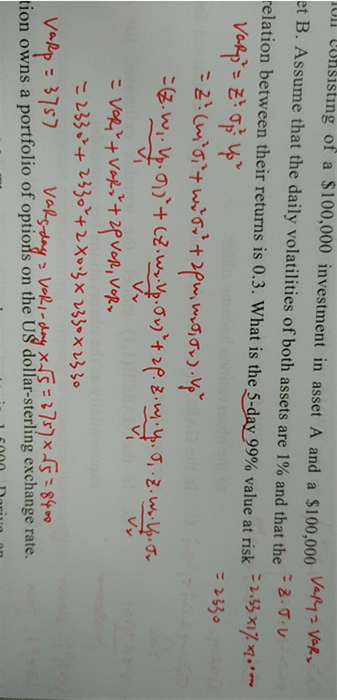 consisting of a $100,000 investment in asset A and a $100,000
et B. Assume that the daily volatilities of both assets are 1% and that the
relation between their returns is 0.3. What is the 5-day 99% value at risk
VaR₁ = VaR₂
= z·σ·V
= 2.33 × 1% × 100000
= 2330
VaRp² = z²·σp²·Vp²
= z²·(w₁²σ₁² + w₂²σ₂² + 2ρw₁w₂σ₁σ₂)·Vp²
= (z·w₁·Vp·σ₁)² + (z·w₂·Vp·σ₂)² + 2ρ·z·w₁·Vp·σ₁·z·w₂·Vp·σ₂
V₁ V₂ V₁ V₂
= VaR₁² + VaR₂² + 2ρVaR₁VaR₂
= 2330² + 2330² + 2×0.3×2330×2330
VaRp = 3757 VaR5-day = VaR1-day × √5 = 3757 × √5 = 8400
tion owns a portfolio of options on the US dollar-sterling exchange rate.